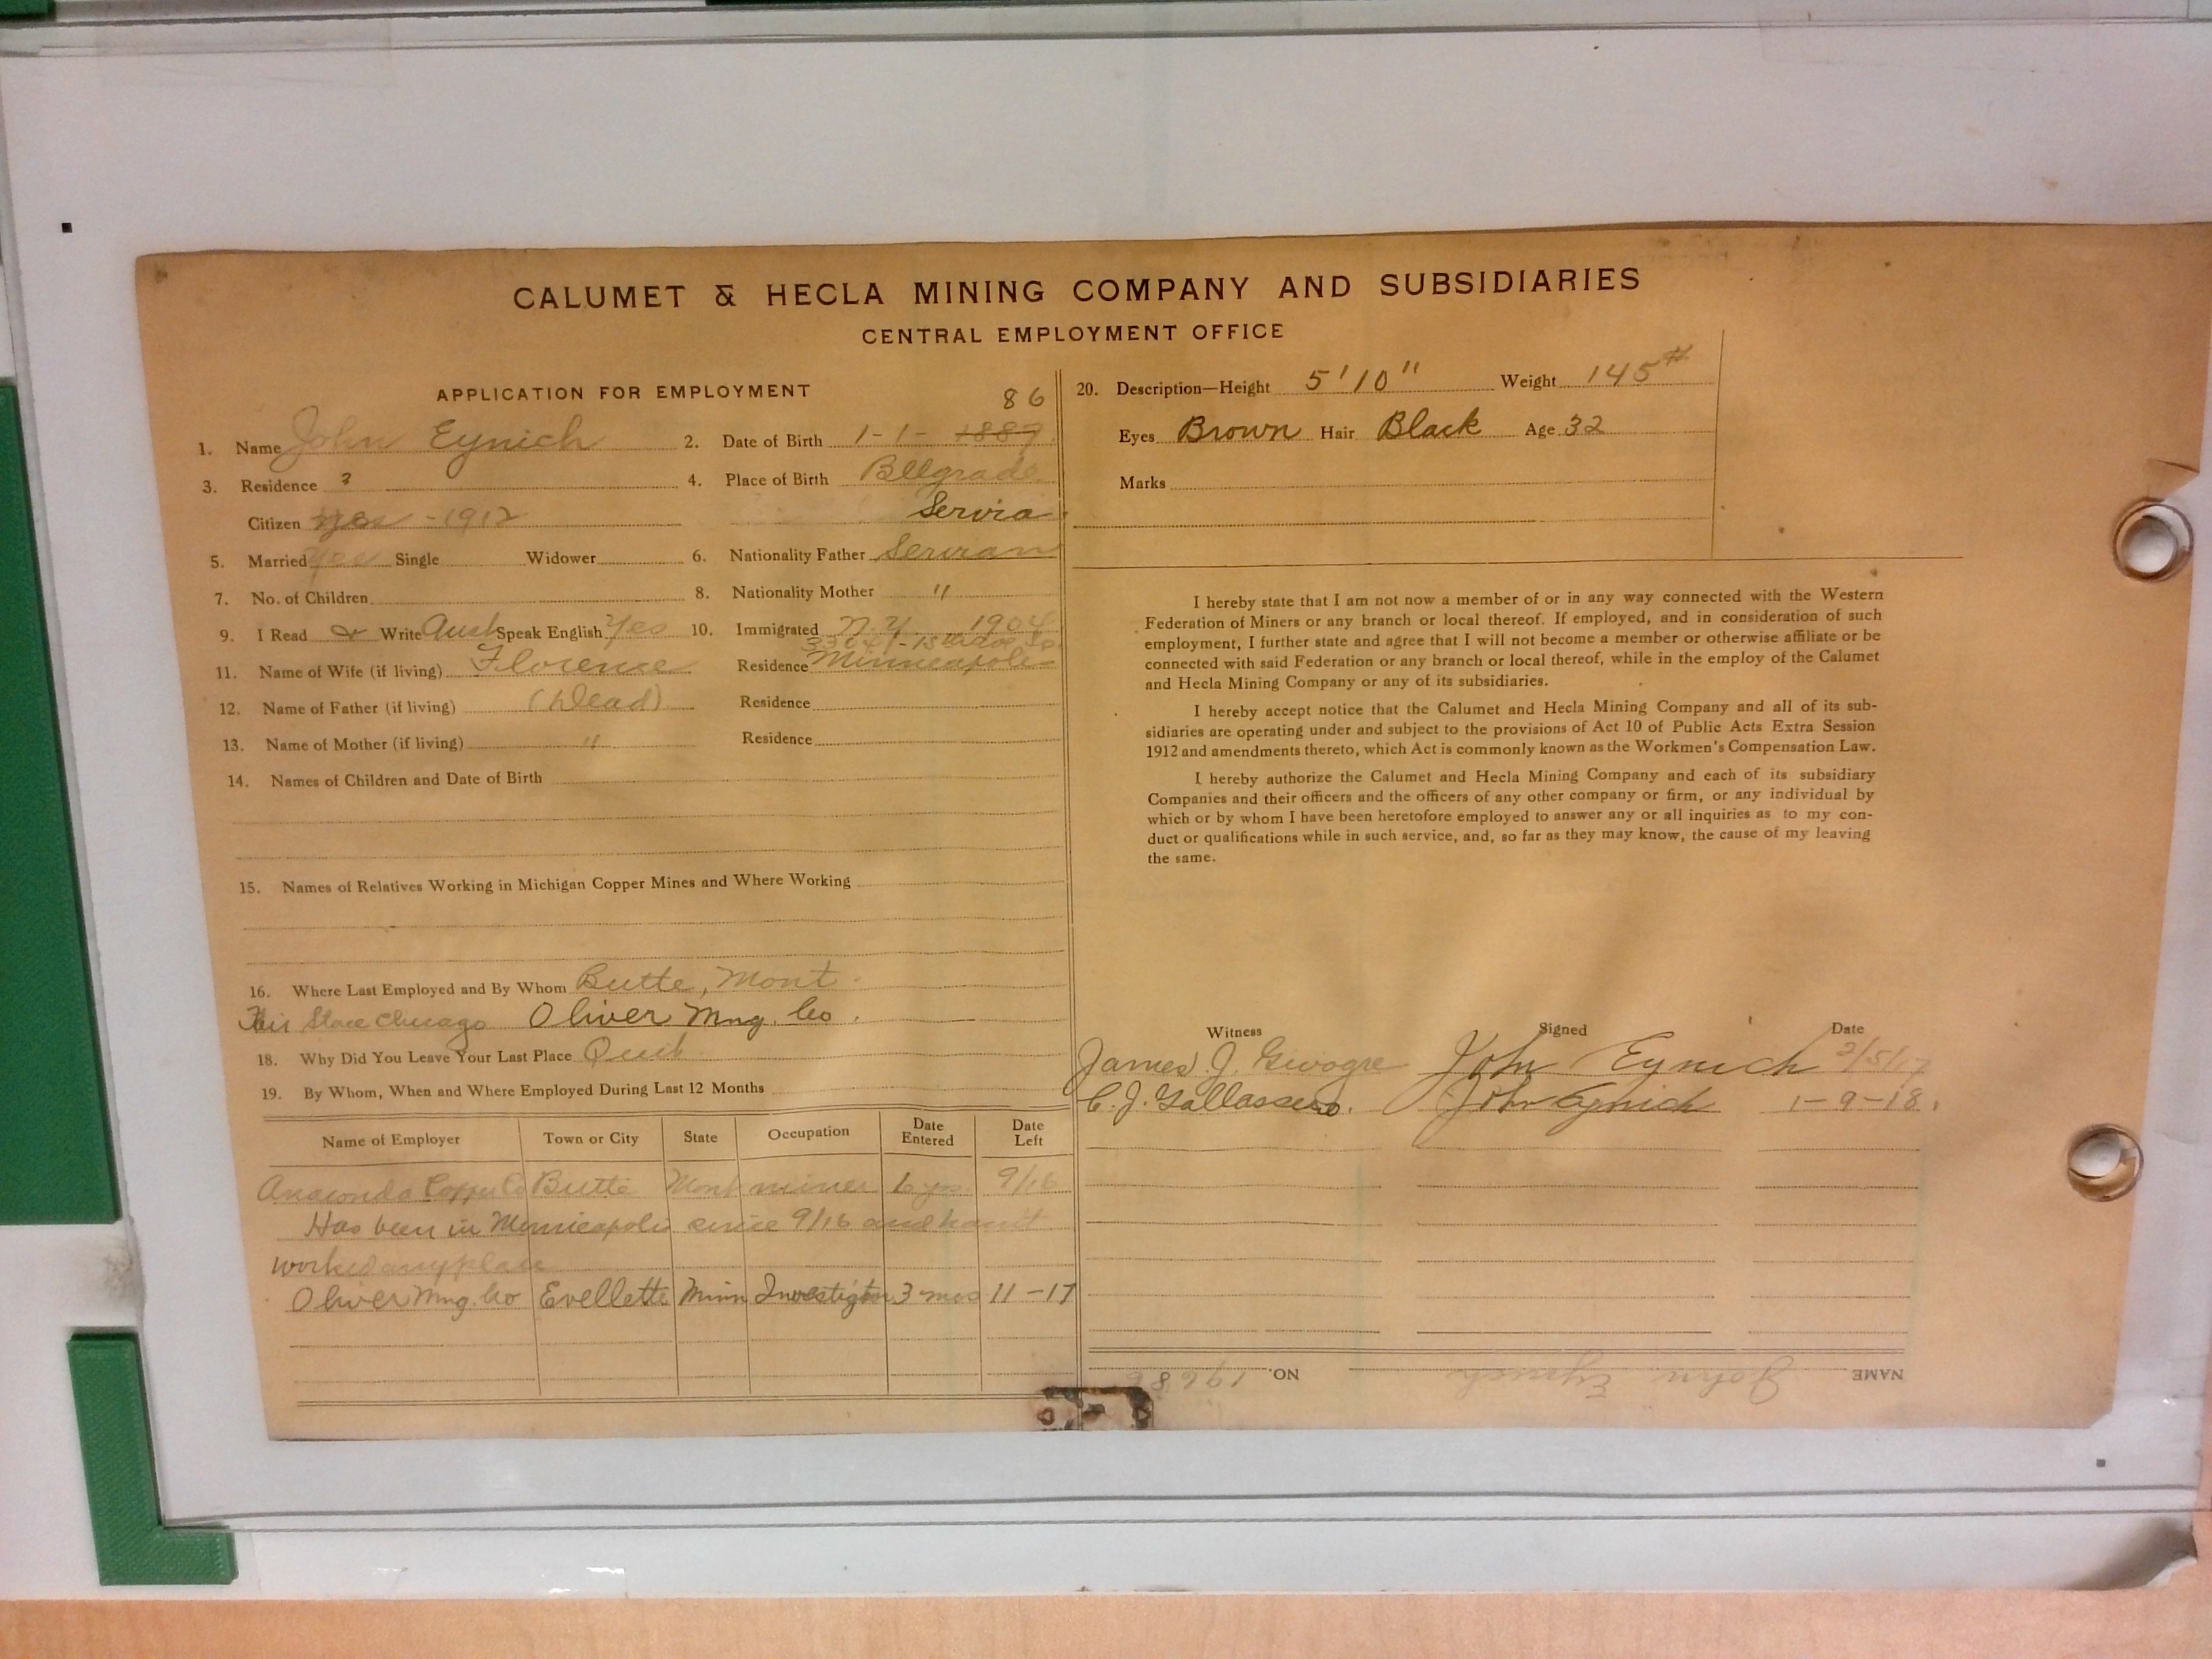 CALUMET & HECLA MINING COMPANY AND SUBSIDIARIES
CENTRAL EMPLOYMENT OFFICE
APPLICATION FOR EMPLOYMENT
86
1. Name John Eynich 2. Date of Birth 1-1- 1887
3. Residence ? 4. Place of Birth Bellgrade
Citizen yes - 1912 Servia
5. Married yes Single Widower 6. Nationality Father Servian
7. No. of Children 8. Nationality Mother "
9. I Read & Write Aust Speak English Yes 10. Immigrated N.Y. 1904
11. Name of Wife (if living) Florence Residence Minneapolis
12. Name of Father (if living) (Dead) Residence
13. Name of Mother (if living) " Residence
14. Names of Children and Date of Birth
15. Names of Relatives Working in Michigan Copper Mines and Where Working
16. Where Last Employed and By Whom Butte, Mont.
Chicago Oliver Mng. Co.
18. Why Did You Leave Your Last Place Quit
19. By Whom, When and Where Employed During Last 12 Months
Name of Employer Town or City State Occupation Date Entered Date Left
Anaconda Copper Co Butte Mont miner 6 yrs. 9/16
Has been in Minneapolis since 9/16 and hasn't
worked any place
Oliver Mng. Co Evellette Minn Investigtor 3 mos 11-17
20. Description—Height 5'10" Weight 145#
Eyes Brown Hair Black Age 32
Marks
I hereby state that I am not now a member of or in any way connected with the Western
Federation of Miners or any branch or local thereof. If employed, and in consideration of such
employment, I further state and agree that I will not become a member or otherwise affiliate or be
connected with said Federation or any branch or local thereof, while in the employ of the Calumet
and Hecla Mining Company or any of its subsidiaries.
I hereby accept notice that the Calumet and Hecla Mining Company and all of its sub-
sidiaries are operating under and subject to the provisions of Act 10 of Public Acts Extra Session
1912 and amendments thereto, which Act is commonly known as the Workmen's Compensation Law.
I hereby authorize the Calumet and Hecla Mining Company and each of its subsidiary
Companies and their officers and the officers of any other company or firm, or any individual by
which or by whom I have been heretofore employed to answer any or all inquiries as to my con-
duct or qualifications while in such service, and, so far as they may know, the cause of my leaving
the same.
Witness Signed Date
James J. John Eynich 2/5/17
C. J. John Eynich 1-9-18.
NAME John Eynich NO.